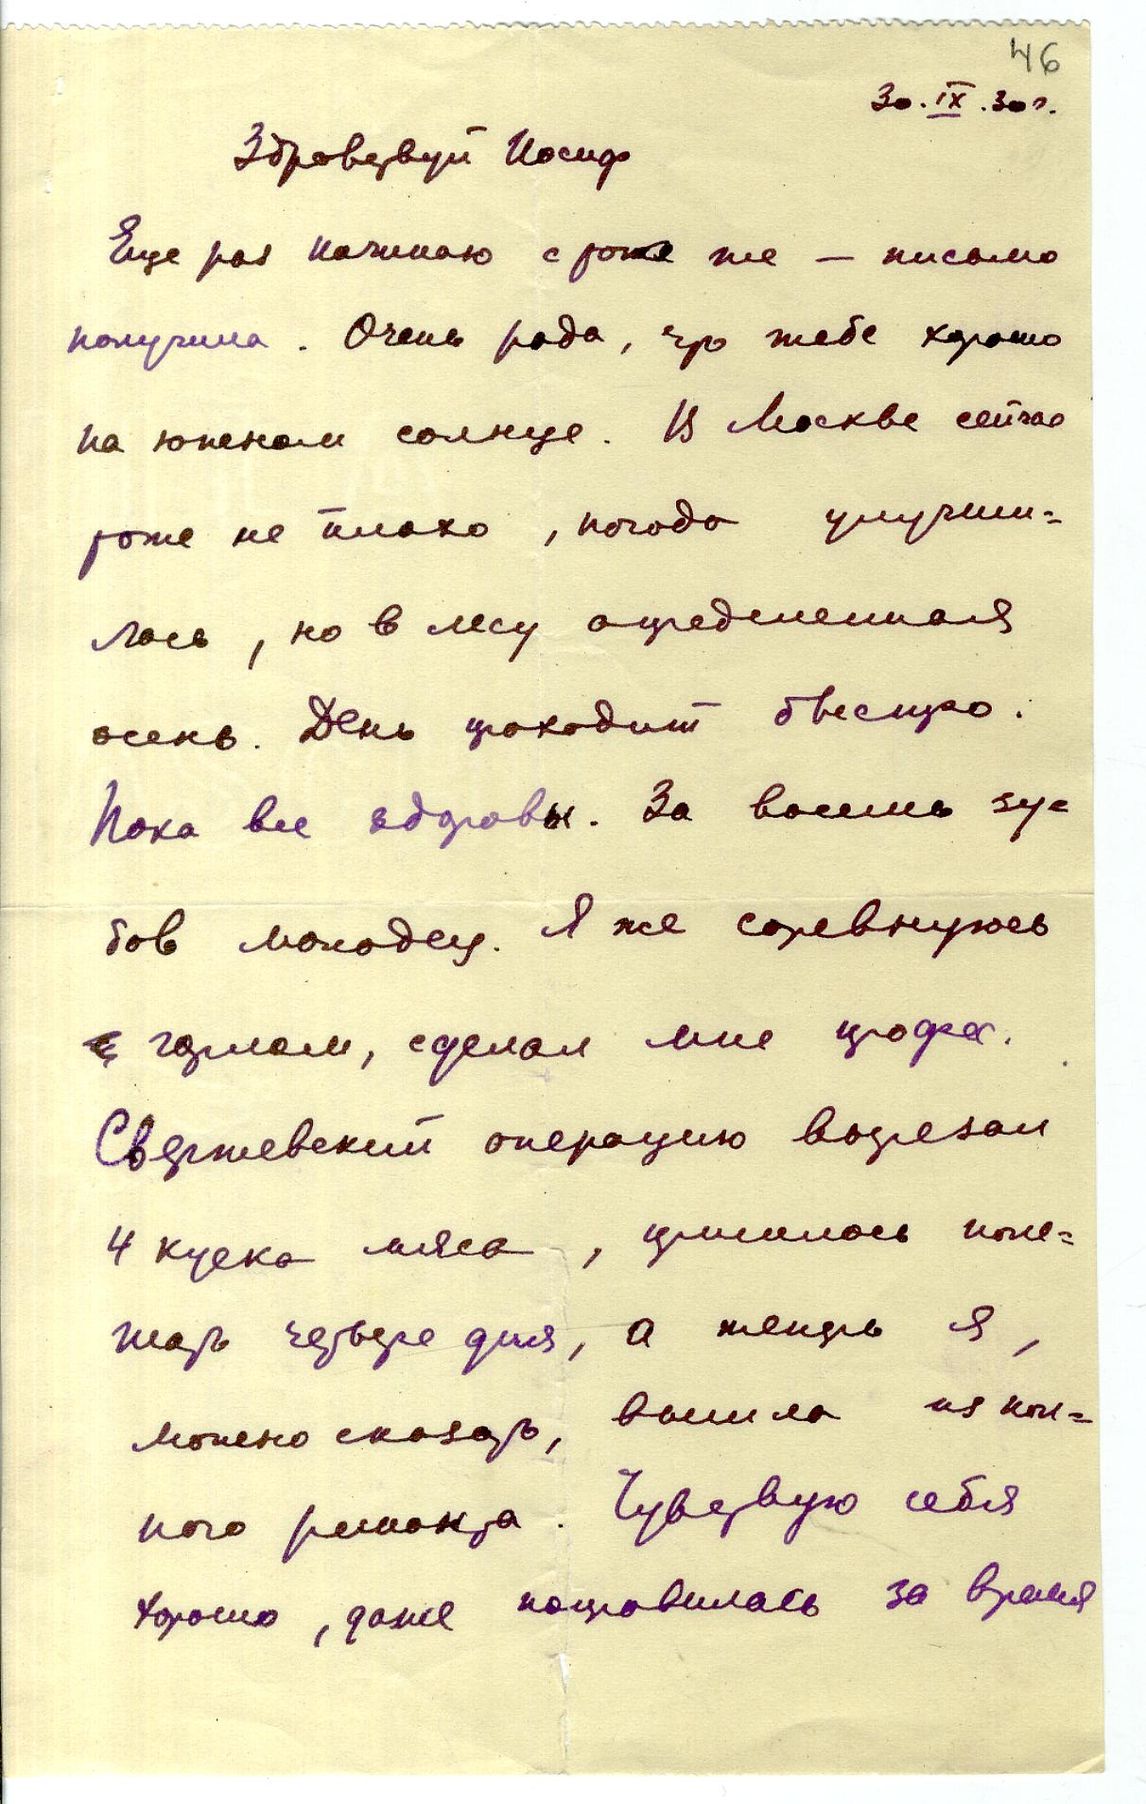 46
30.IX.30 г.
Здравствуй Иосиф
Еще раз начинаю с тоже же – письмо
получила. Очень рада, что тебе хорошо
на южном солнце. В Москве сейчас
тоже не плохо, погода улучши=
лась, но в лесу определенная
осень. День проходит быстро.
Пока все здоровы. За восемь зу=
бов молодец. Я же соревнуюсь
с горлом, сделал мне профес.
Свержевский операцию вырезал
4 куска мяса, пришлось поле=
жать четыре дня, а теперь я,
можно сказать, вышла из пол=
ного ремонта. Чувствую себя
хорошо, даже поправилась за время